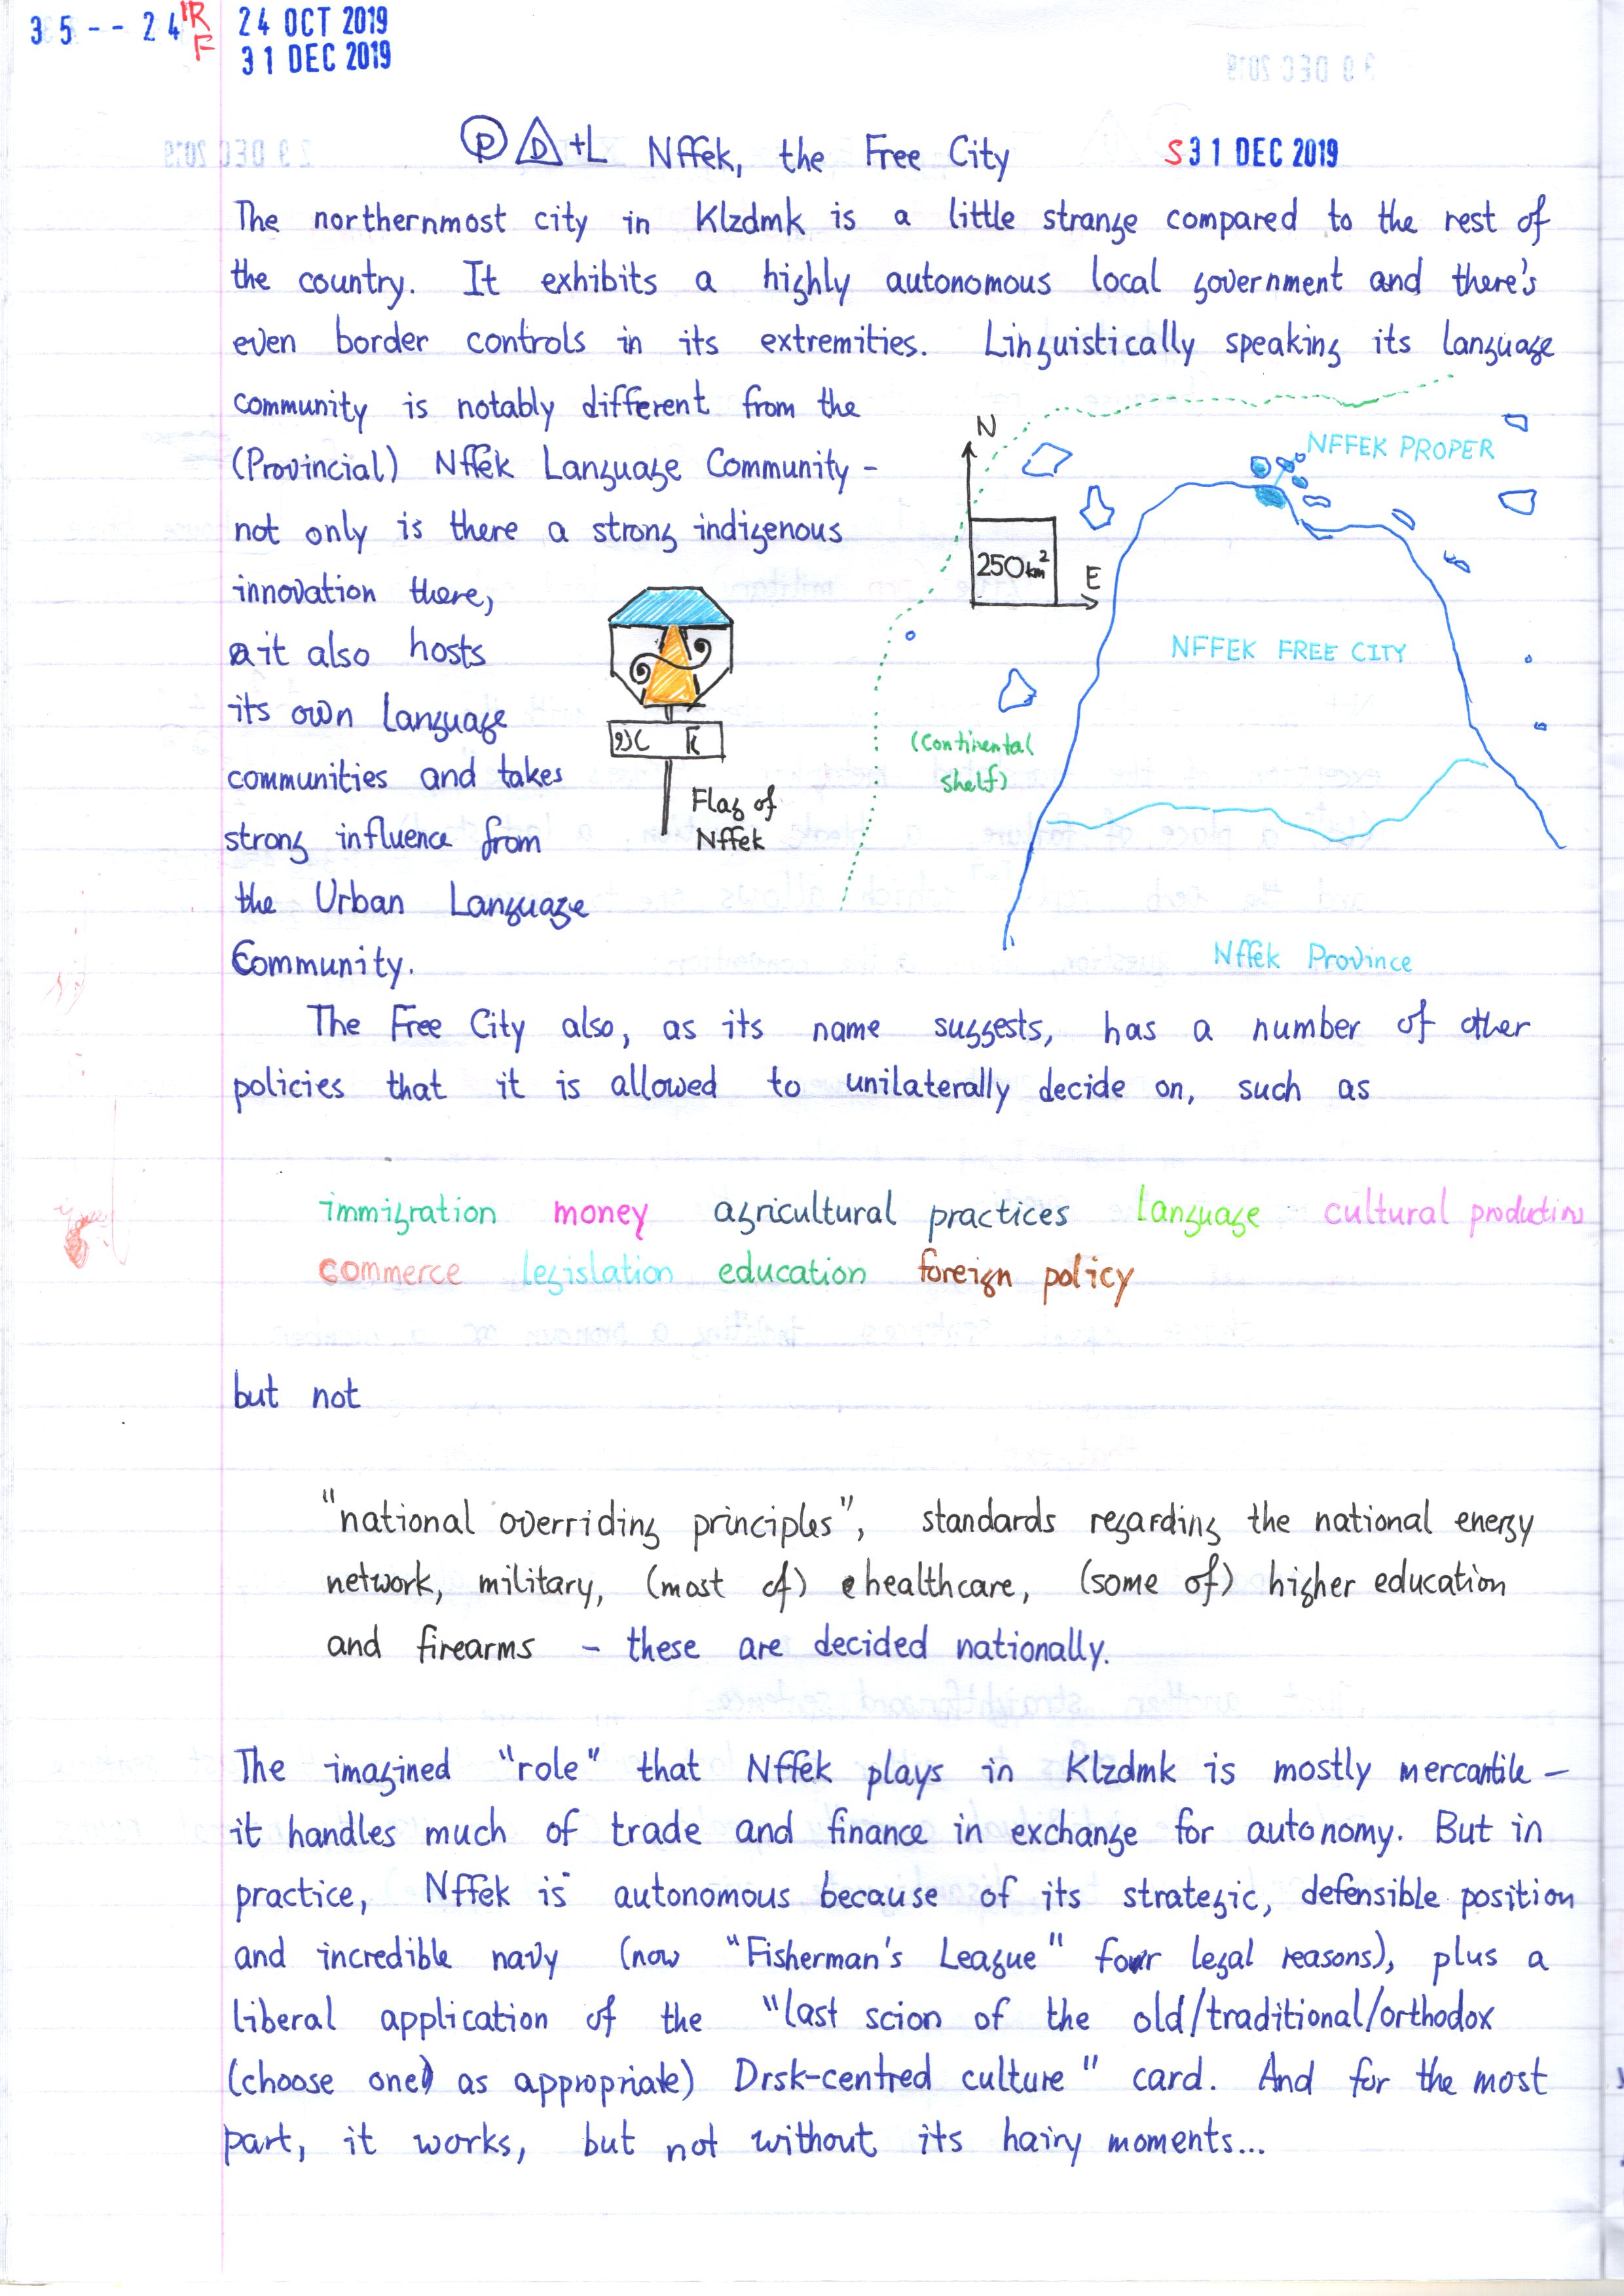 35--24 RF 24 OCT 2019
31 DEC 2019
P D +L Nffek, the Free City S31 DEC 2019
The northernmost city in Klzdmk is a little strange compared to the rest of
the country. It exhibits a highly autonomous local government and there's
even border controls in its extremities. Linguistically speaking its language
community is notably different from the
(Provincial) Nffek Language Community -
not only is there a strong indigenous
innovation there,
it also hosts
its own language
communities and takes
strong influence from
the Urban Language
Community.
Flag of
Nffek
N
250km²
E
NFFEK PROPER
NFFEK FREE CITY
(Continental
shelf)
Nffek Province
The Free City also, as its name suggests, has a number of other
policies that it is allowed to unilaterally decide on, such as
immigration money agricultural practices language cultural production
commerce legislation education foreign policy
but not
"national overriding principles", standards regarding the national energy
network, military, (most of) healthcare, (some of) higher education
and firearms - these are decided nationally.
The imagined "role" that Nffek plays in Klzdmk is mostly mercantile -
it handles much of trade and finance in exchange for autonomy. But in
practice, Nffek is autonomous because of its strategic, defensible position
and incredible navy (now "Fisherman's League" for legal reasons), plus a
liberal application of the "last scion of the old/traditional/orthodox
(choose one) as appropriate) Drsk-centred culture" card. And for the most
part, it works, but not without its hairy moments...